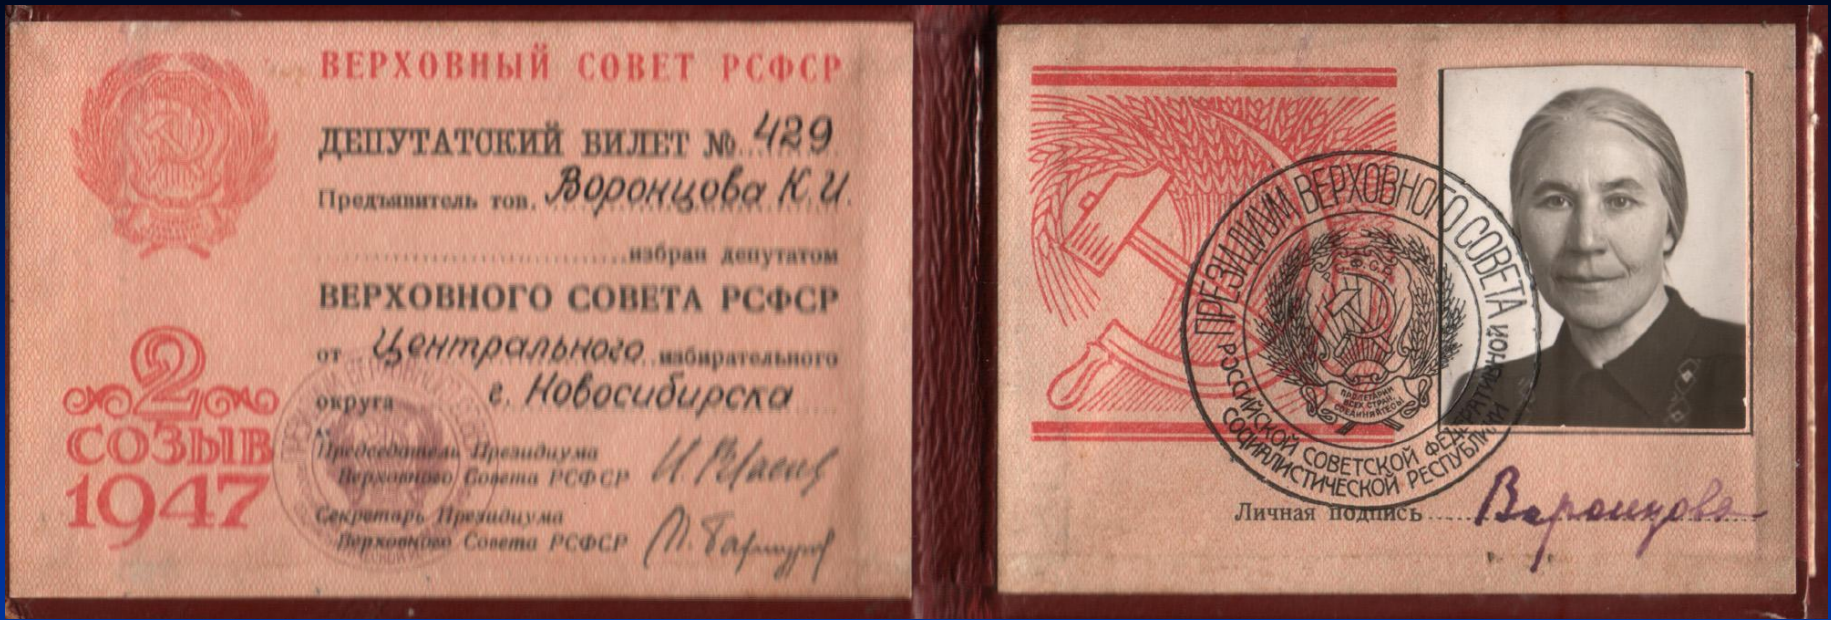 ВЕРХОВНЫЙ СОВЕТ РСФСР
ДЕПУТАТСКИЙ БИЛЕТ № 429
Предъявитель тов. Воронцова К. И.
избран депутатом
ВЕРХОВНОГО СОВЕТА РСФСР
от Центрального избирательного
округа г. Новосибирска
Председатель Президиума
Верховного Совета РСФСР И. Власов
Секретарь Президиума
Верховного Совета РСФСР П. Бахмуров
2
СОЗЫВ
1947
ПРЕЗИДИУМ ВЕРХОВНОГО СОВЕТА
РОССИЙСКОЙ СОВЕТСКОЙ ФЕДЕРАТИВНОЙ
СОЦИАЛИСТИЧЕСКОЙ РЕСПУБЛИКИ
ПРОЛЕТАРИИ
ВСЕХ СТРАН,
СОЕДИНЯЙТЕСЬ!
Личная подпись Воронцова